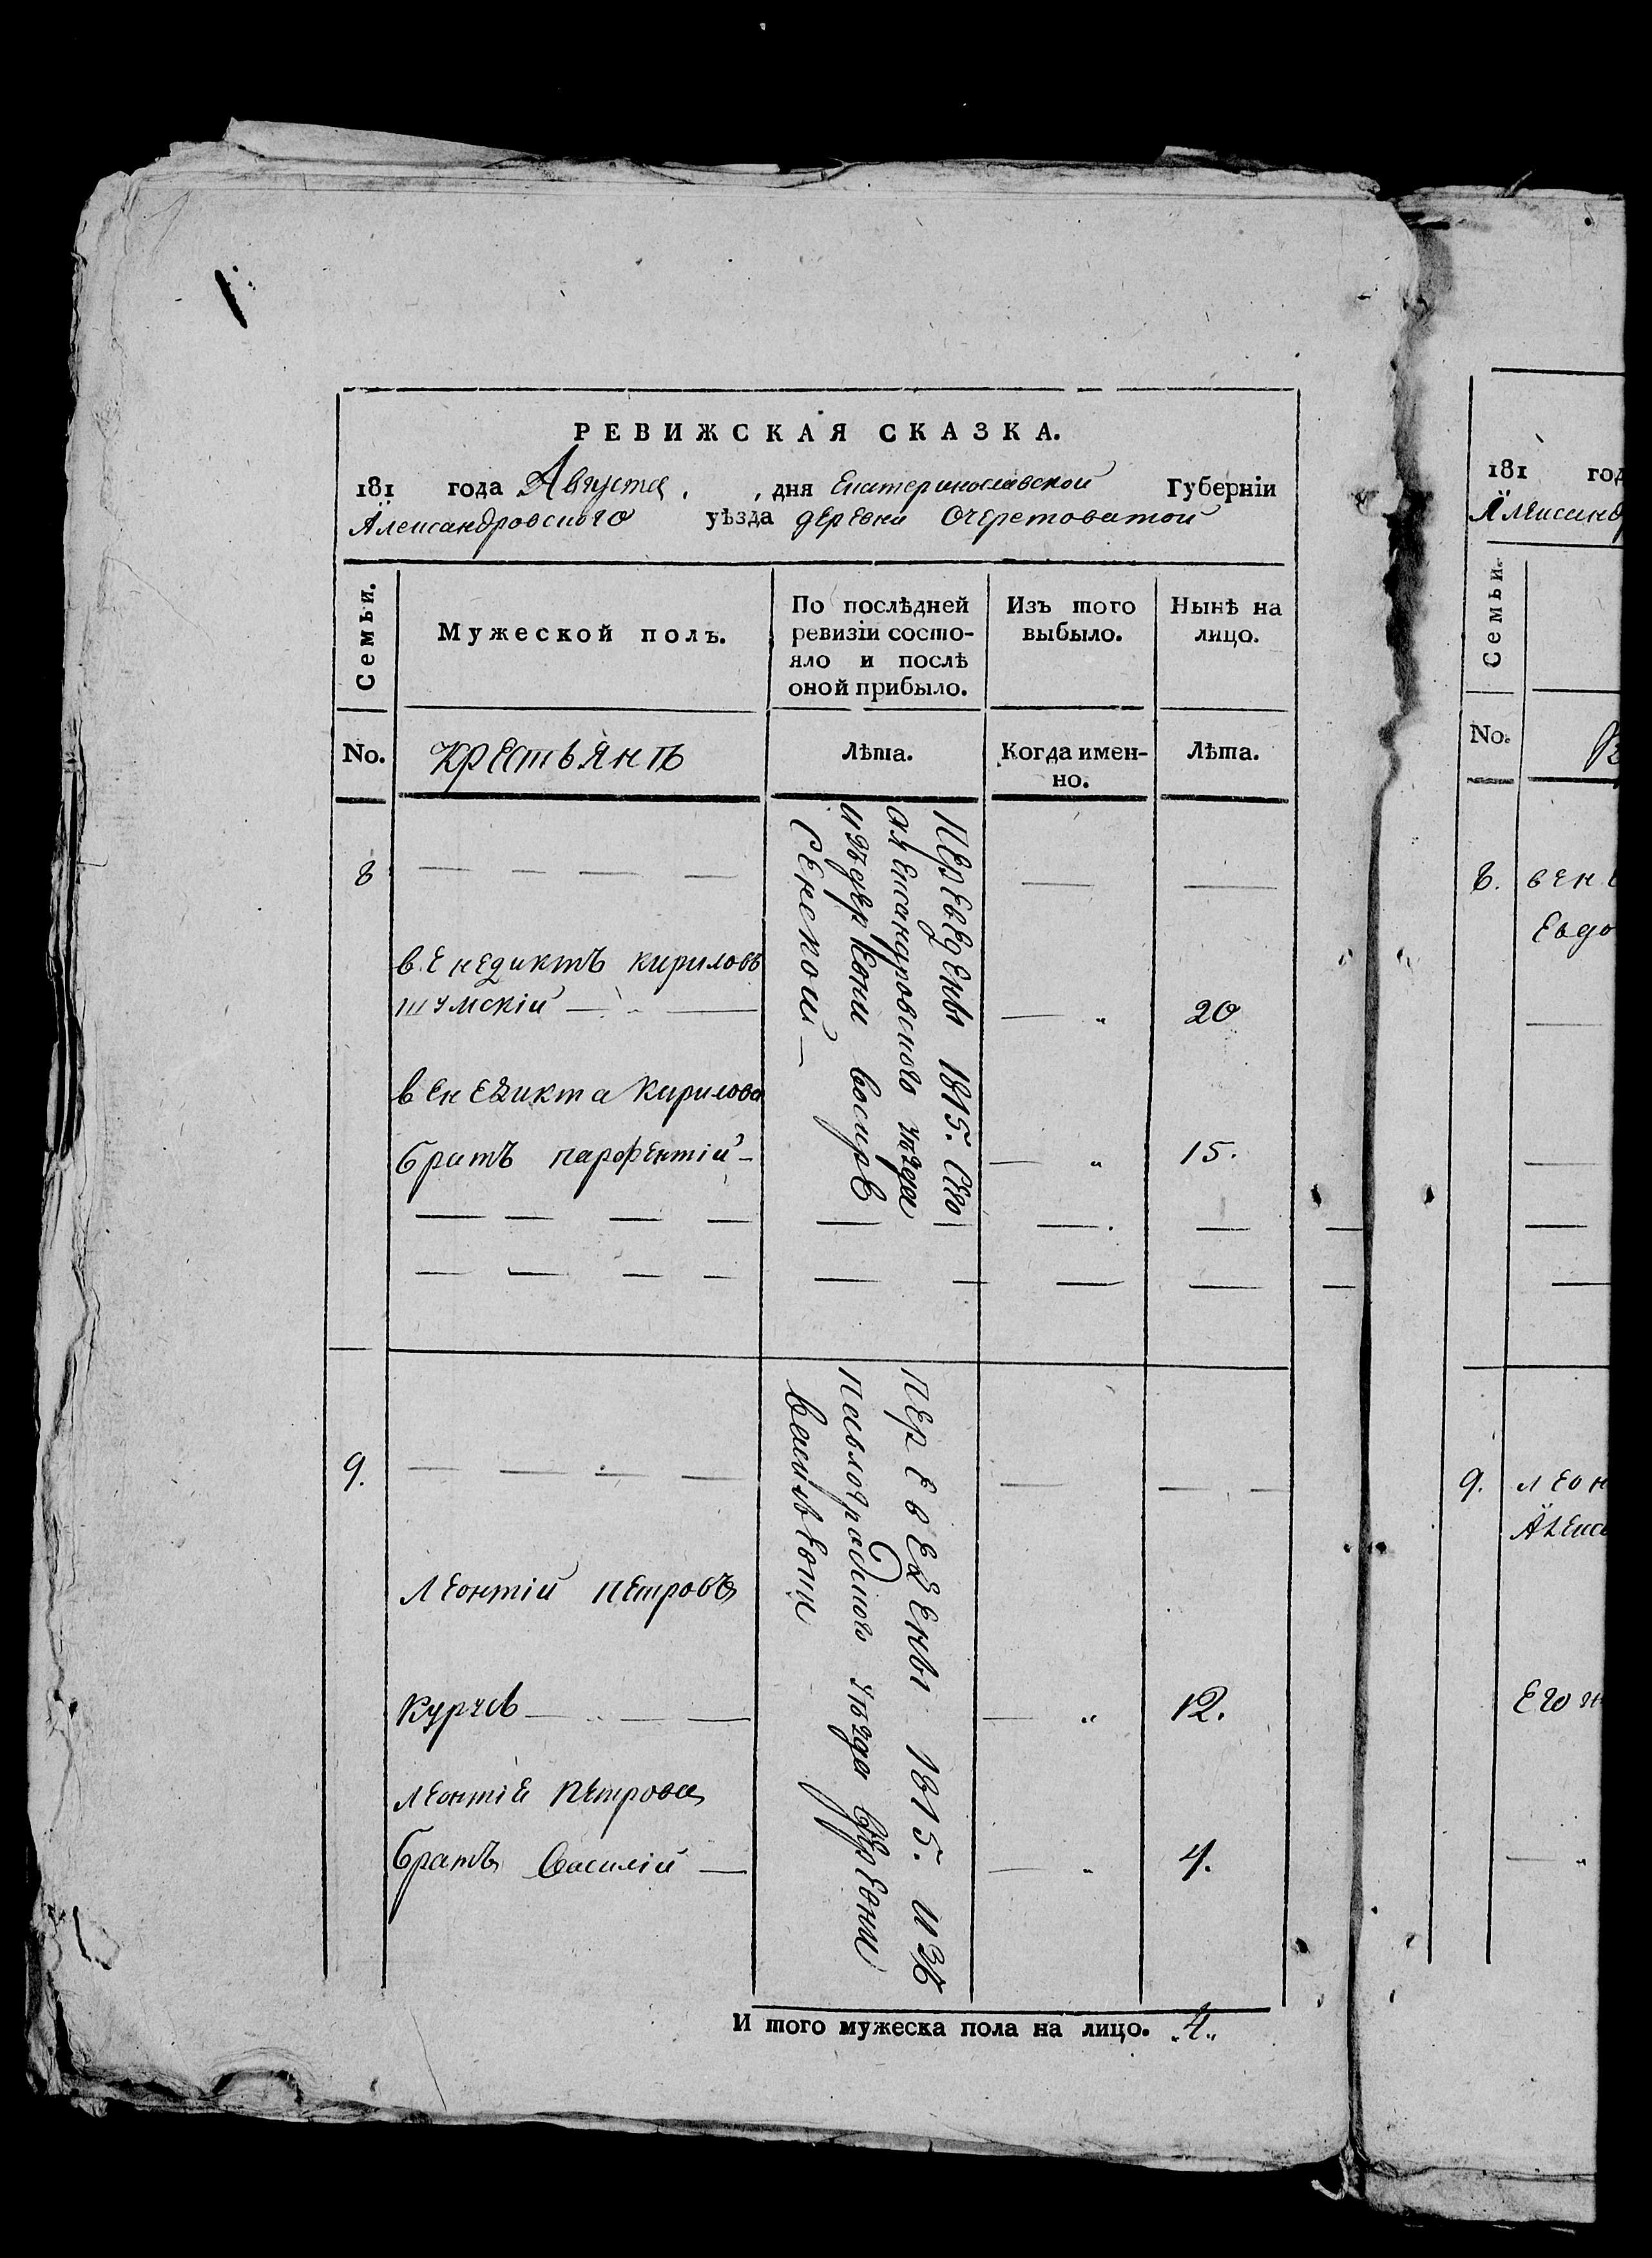 РЕВИЖСКАЯ СКАЗКА.
181 года Августа, дня Екатеринославской Губерніи
Александровского уѣзда деревни Очеретоватой
Семьи.
Мужеской полъ.
По послѣдней
ревизіи состо-
яло и послѣ
оной прибыло.
Изъ того
выбыло.
Нынѣ на
лицо.
No.
крестьянъ
Лѣта.
Когда имен-
но.
Лѣта.
8
Переведены 1815. Сего
александровского уѣзда
изъ деревни
венедиктъ кириловъ
шумскій
20
венедикта кирилова
братъ парфентій
15.
9.
переведены 1815. изъ
павлоградского уѣзда деревни
васильевки
леонтій петровъ
12.
леонтіе петрова
братъ василій
4.
И того мужеска пола на лицо. „4„
181 год
Александ
Семьи.
No.
8. вене
Евдо
9. леон
Алекс
Его